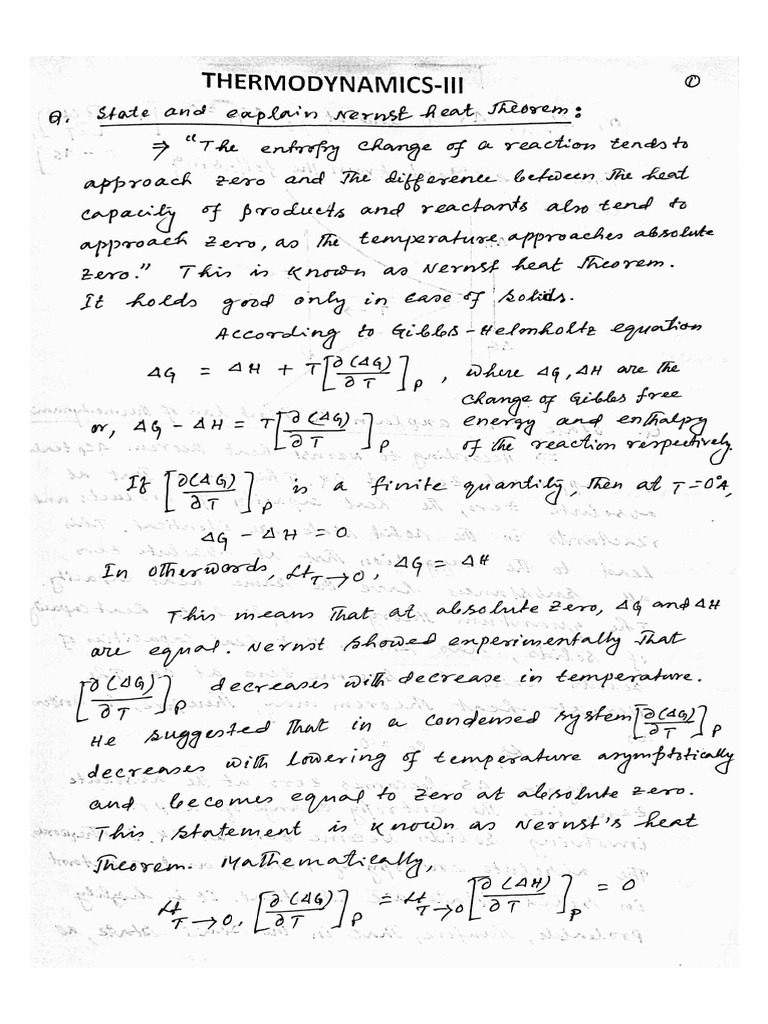 THERMODYNAMICS-III
①
Q. State and explain Nernst heat Theorem:
⇒ "The entropy change of a reaction tends to
approach zero and the difference between the heat
capacity of products and reactants also tend to
approach zero, as the temperature approaches absolute
zero." This is known as Nernst heat theorem.
It holds good only in case of solids.
According to Gibbs-Helmholtz equation
ΔG = ΔH + T[∂(ΔG)/∂T]_P, where ΔG, ΔH are the
change of Gibbs free
or, ΔG - ΔH = T[∂(ΔG)/∂T]_P energy and enthalpy
of the reaction respectively.
If [∂(ΔG)/∂T]_P is a finite quantity, then at T=0°A,
ΔG - ΔH = 0
In otherwords, Lt T→0, ΔG = ΔH
This means that at absolute zero, ΔG and ΔH
are equal. Nernst showed experimentally that
[∂(ΔG)/∂T]_P decreases with decrease in temperature.
He suggested that in a condensed system [∂(ΔG)/∂T]_P
decreases with lowering of temperature asymptotically
and becomes equal to zero at absolute zero.
This statement is known as Nernst's heat
theorem. Mathematically,
Lt T→0, [∂(ΔG)/∂T]_P = Lt T→0 [∂(ΔH)/∂T]_P = 0